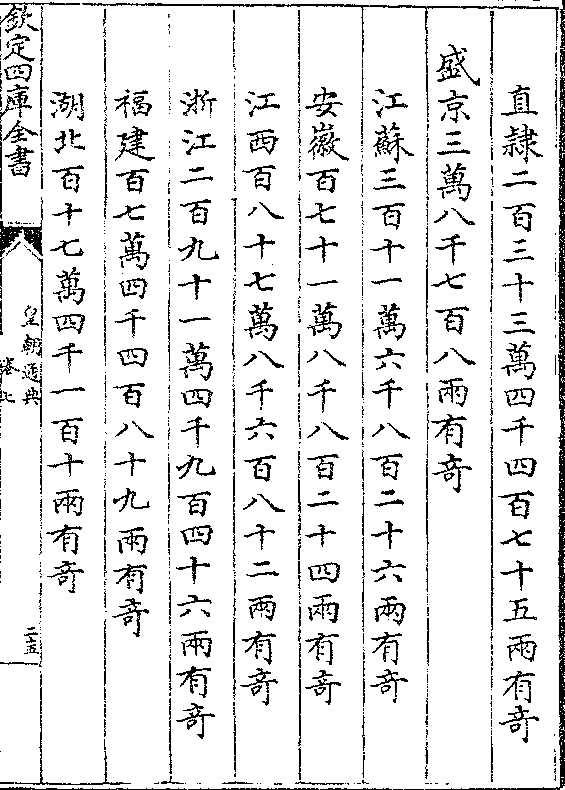 直隸二百三十三萬四千四百七十五兩有奇
盛京三萬八千七百八兩有奇
江蘇三百十一萬六千八百二十六兩有奇
安徽百七十一萬八千八百二十四兩有奇
江西百八十七萬八千六百八十二兩有奇
浙江二百九十一萬四千九百四十六兩有奇
福建百七萬四千四百八十九兩有奇
湖北百十七萬四千一百十兩有奇
欽定四庫全書
皇朝通典
卷七
二十五